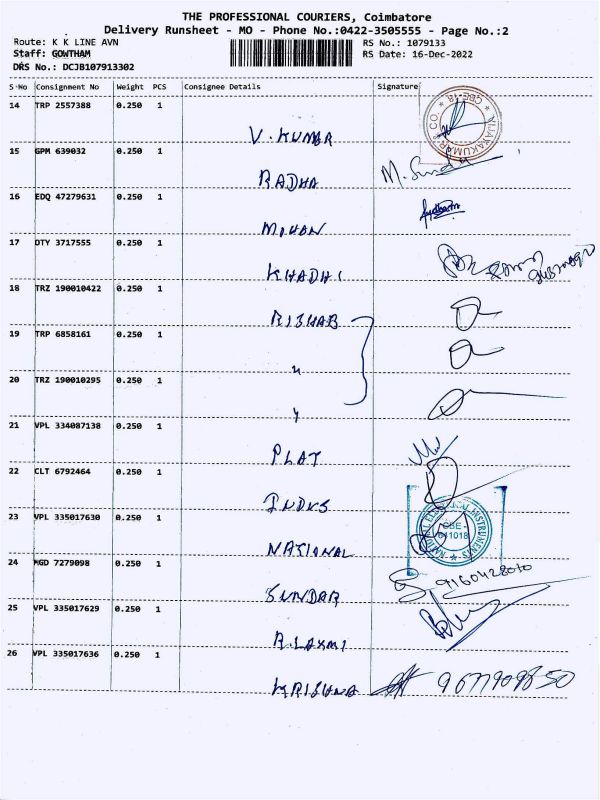 THE PROFESSIONAL COURIERS, Coimbatore
Delivery Runsheet - MO - Phone No.:0422-3505555 - Page No.:2
Route: K K LINE AVN RS No.: 1079133
Staff: GOWTHAM RS Date: 16-Dec-2022
DRS No.: DCJB107913302
S No Consignment No Weight PCS Consignee Details Signature
14 TRP 2557388 0.250 1
V. KUMAR
VIJAYAKUMAR & CO. CBE-18
15 GPM 639032 0.250 1
RADHA
16 EDQ 47279631 0.250 1
MOHAN
17 DTY 3717555 0.250 1
KHADHI
18 TRZ 190010422 0.250 1
RISHAB
19 TRP 6858161 0.250 1
"
20 TRZ 190010295 0.250 1
"
21 VPL 334087138 0.250 1
PLAT
22 CLT 6792464 0.250 1
INDUS
23 VPL 335017630 0.250 1
NATIONAL
INSTRUMENTS
CBE -
641018
24 MGD 7279098 0.250 1
SUNDAR
9160428010
25 VPL 335017629 0.250 1
R. LAXMI
26 VPL 335017636 0.250 1
KRISHNA